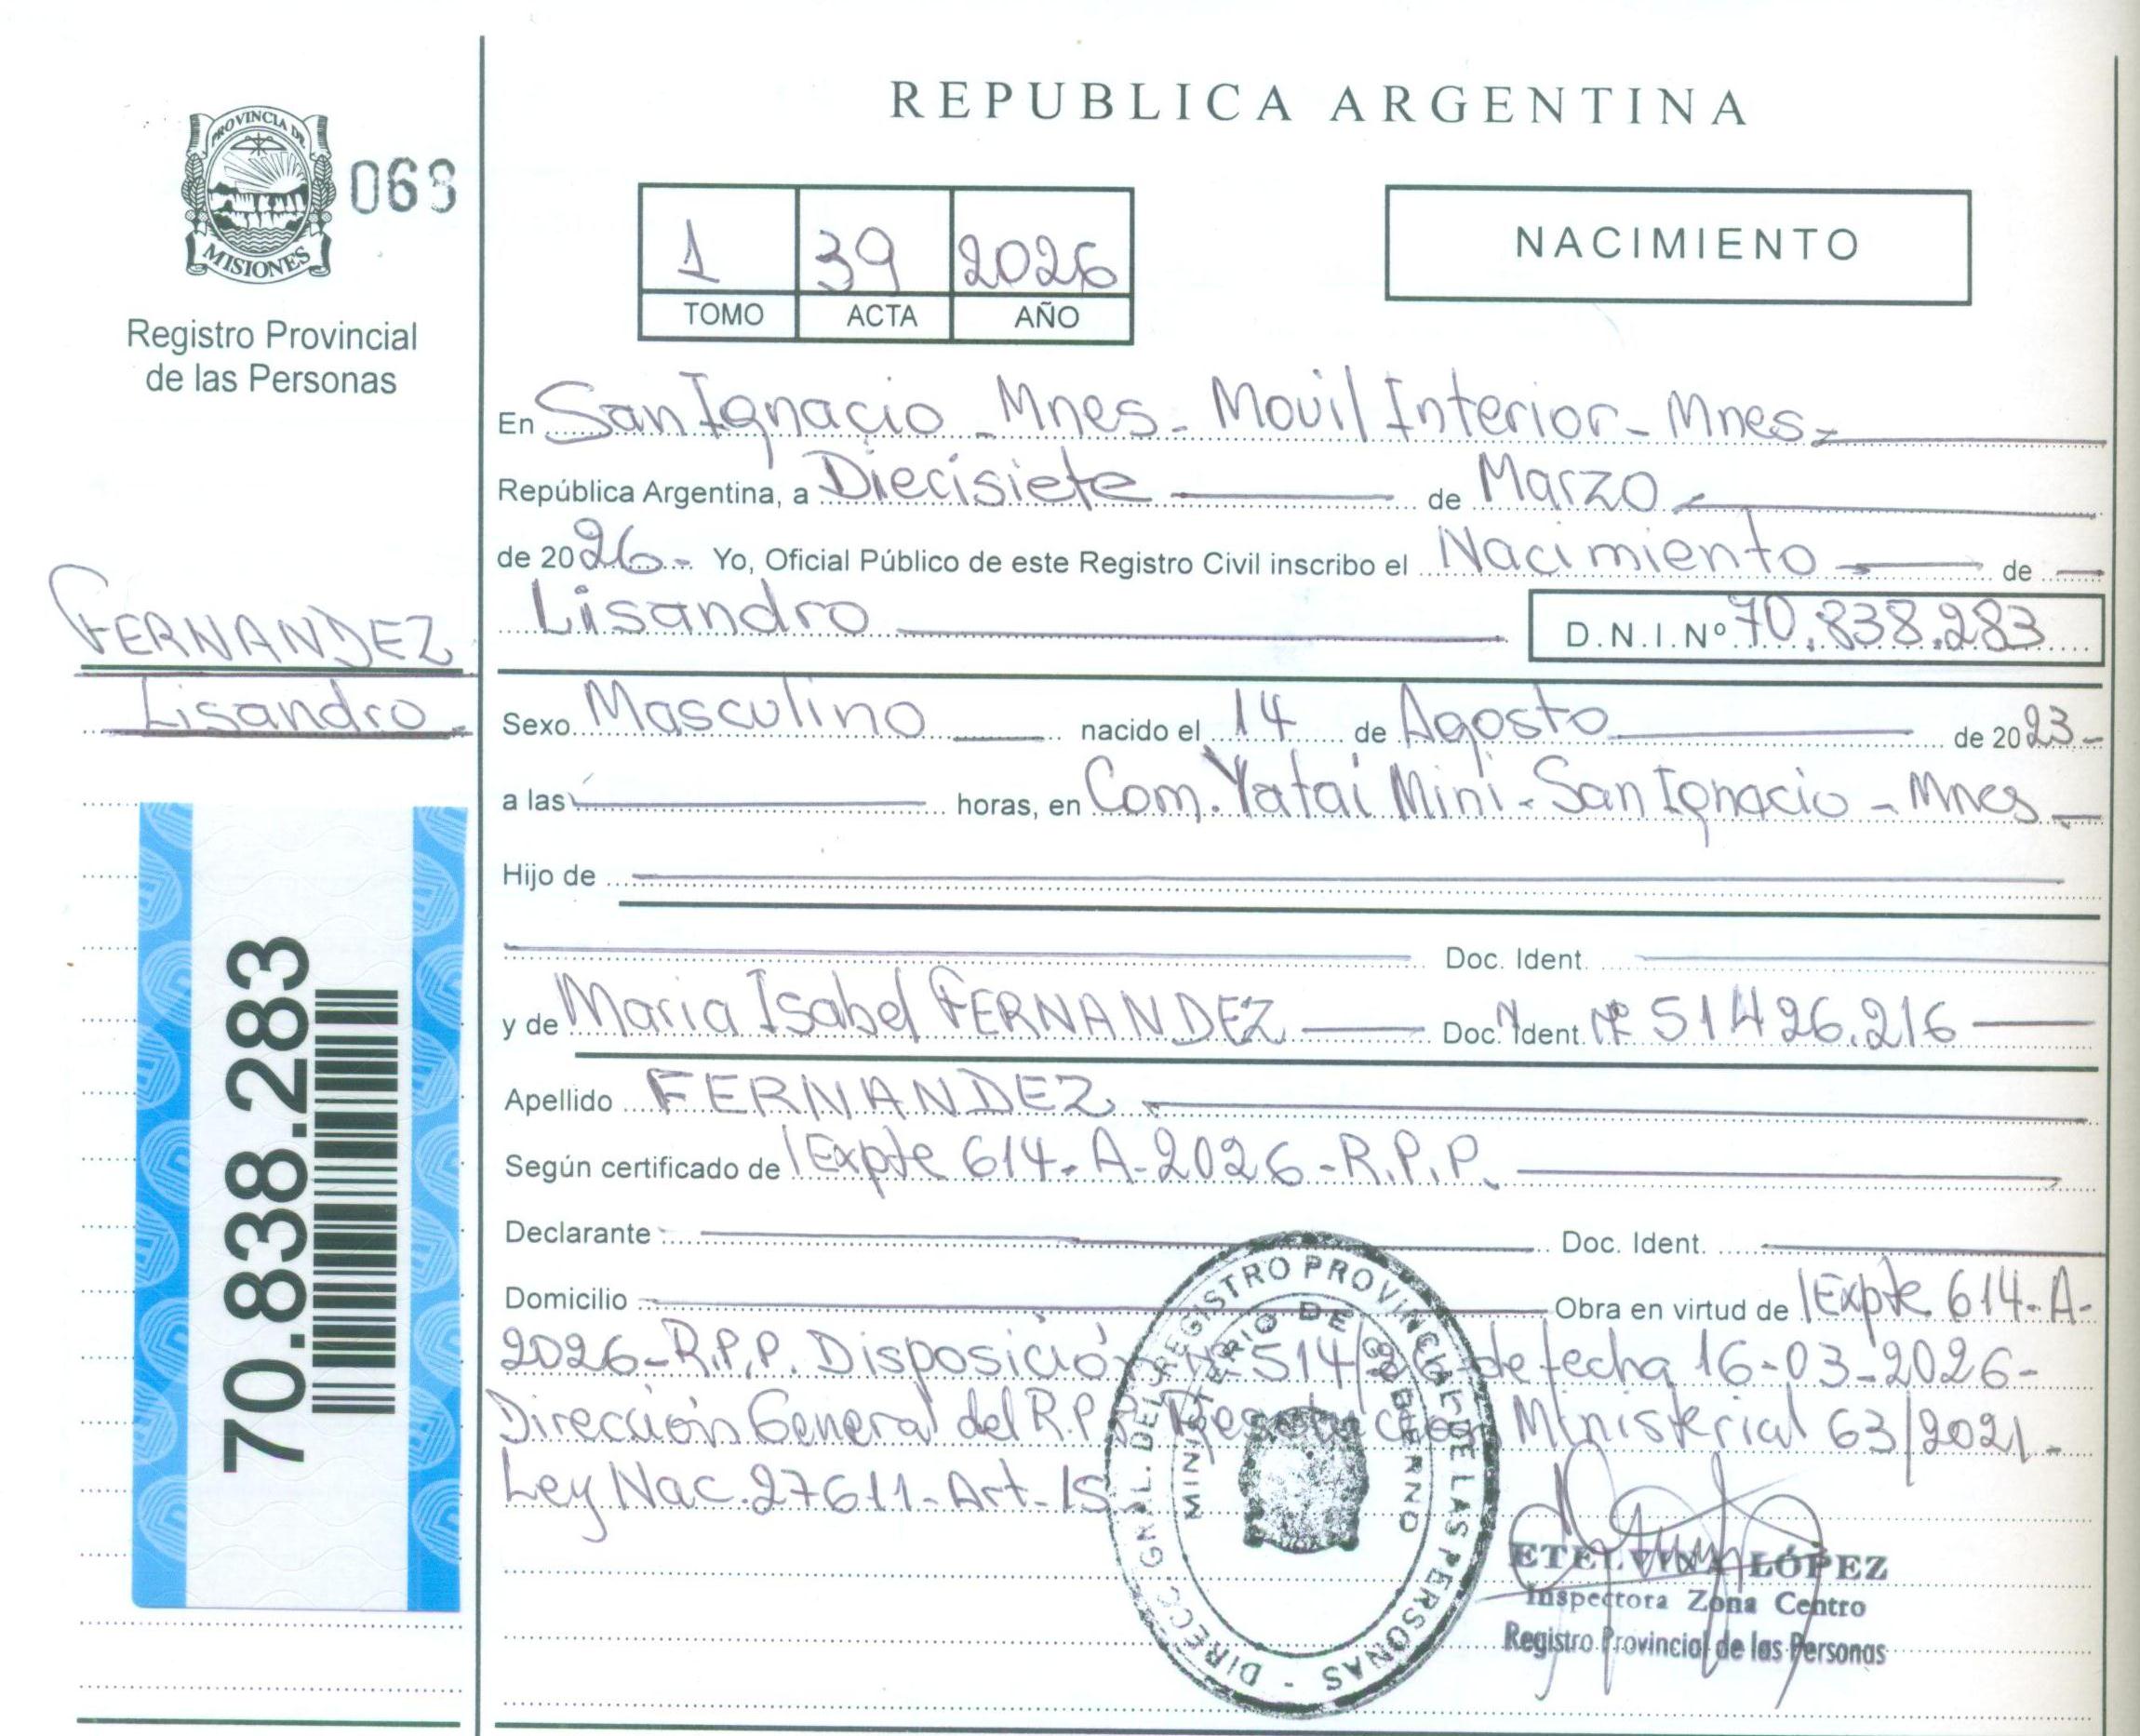 REPUBLICA ARGENTINA
PROVINCIA DE
MISIONES
063
Registro Provincial
de las Personas
1 39 2026
TOMO ACTA AÑO
NACIMIENTO
En San Ignacio - Mnes - Movil Interior - Mnes -
República Argentina, a Diecisiete de Marzo
de 2026 - Yo, Oficial Público de este Registro Civil inscribo el Nacimiento de
Lisandro D.N.I.Nº 70.838.283
FERNANDEZ
Lisandro
Sexo Masculino nacido el 14 de Agosto de 2023 -
a las horas, en Com. Yatai Mini - San Ignacio - Mnes
Hijo de
Doc. Ident.
y de Maria Isabel FERNANDEZ Doc. Ident. Nº 51426.216
Apellido FERNANDEZ
Según certificado de Expte 614 - A - 2026 - R.P.P.
Declarante Doc. Ident.
Domicilio Obra en virtud de Expte 614 - A -
2026 - R.P.P. Disposición 514/26 de fecha 16-03-2026 -
Dirección General del R.P.P. Resolución Ministerial 63/2021 -
Ley Nac. 27611 - Art.
70.838.283
DIRECC. GRAL. DEL REGISTRO PROVINCIAL DE LAS PERSONAS -
MINISTERIO DE GOBIERNO
ETELVINA LÓPEZ
Inspectora Zona Centro
Registro Provincial de las Personas